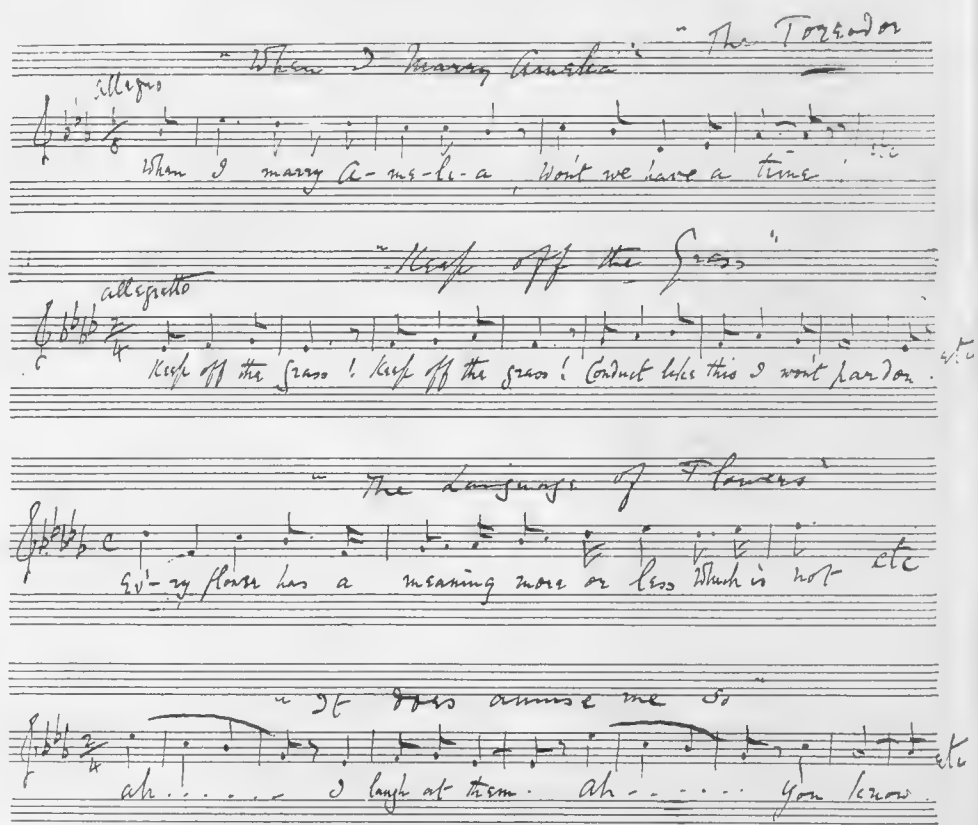 "When I Marry Amelia" "The Toreador
allegro
When I marry A-me-li-a, Won't we have a time! etc
"Keep off the Grass"
allegretto
2/4
Keep off the grass! Keep off the grass! Conduct like this I won't pardon. etc
"The Language of Flowers"
C
Ev'-ry flower has a meaning more or less Which is not etc
"It does amuse me so"
2/4
ah....... I laugh at them. Ah - - ..... You know. etc